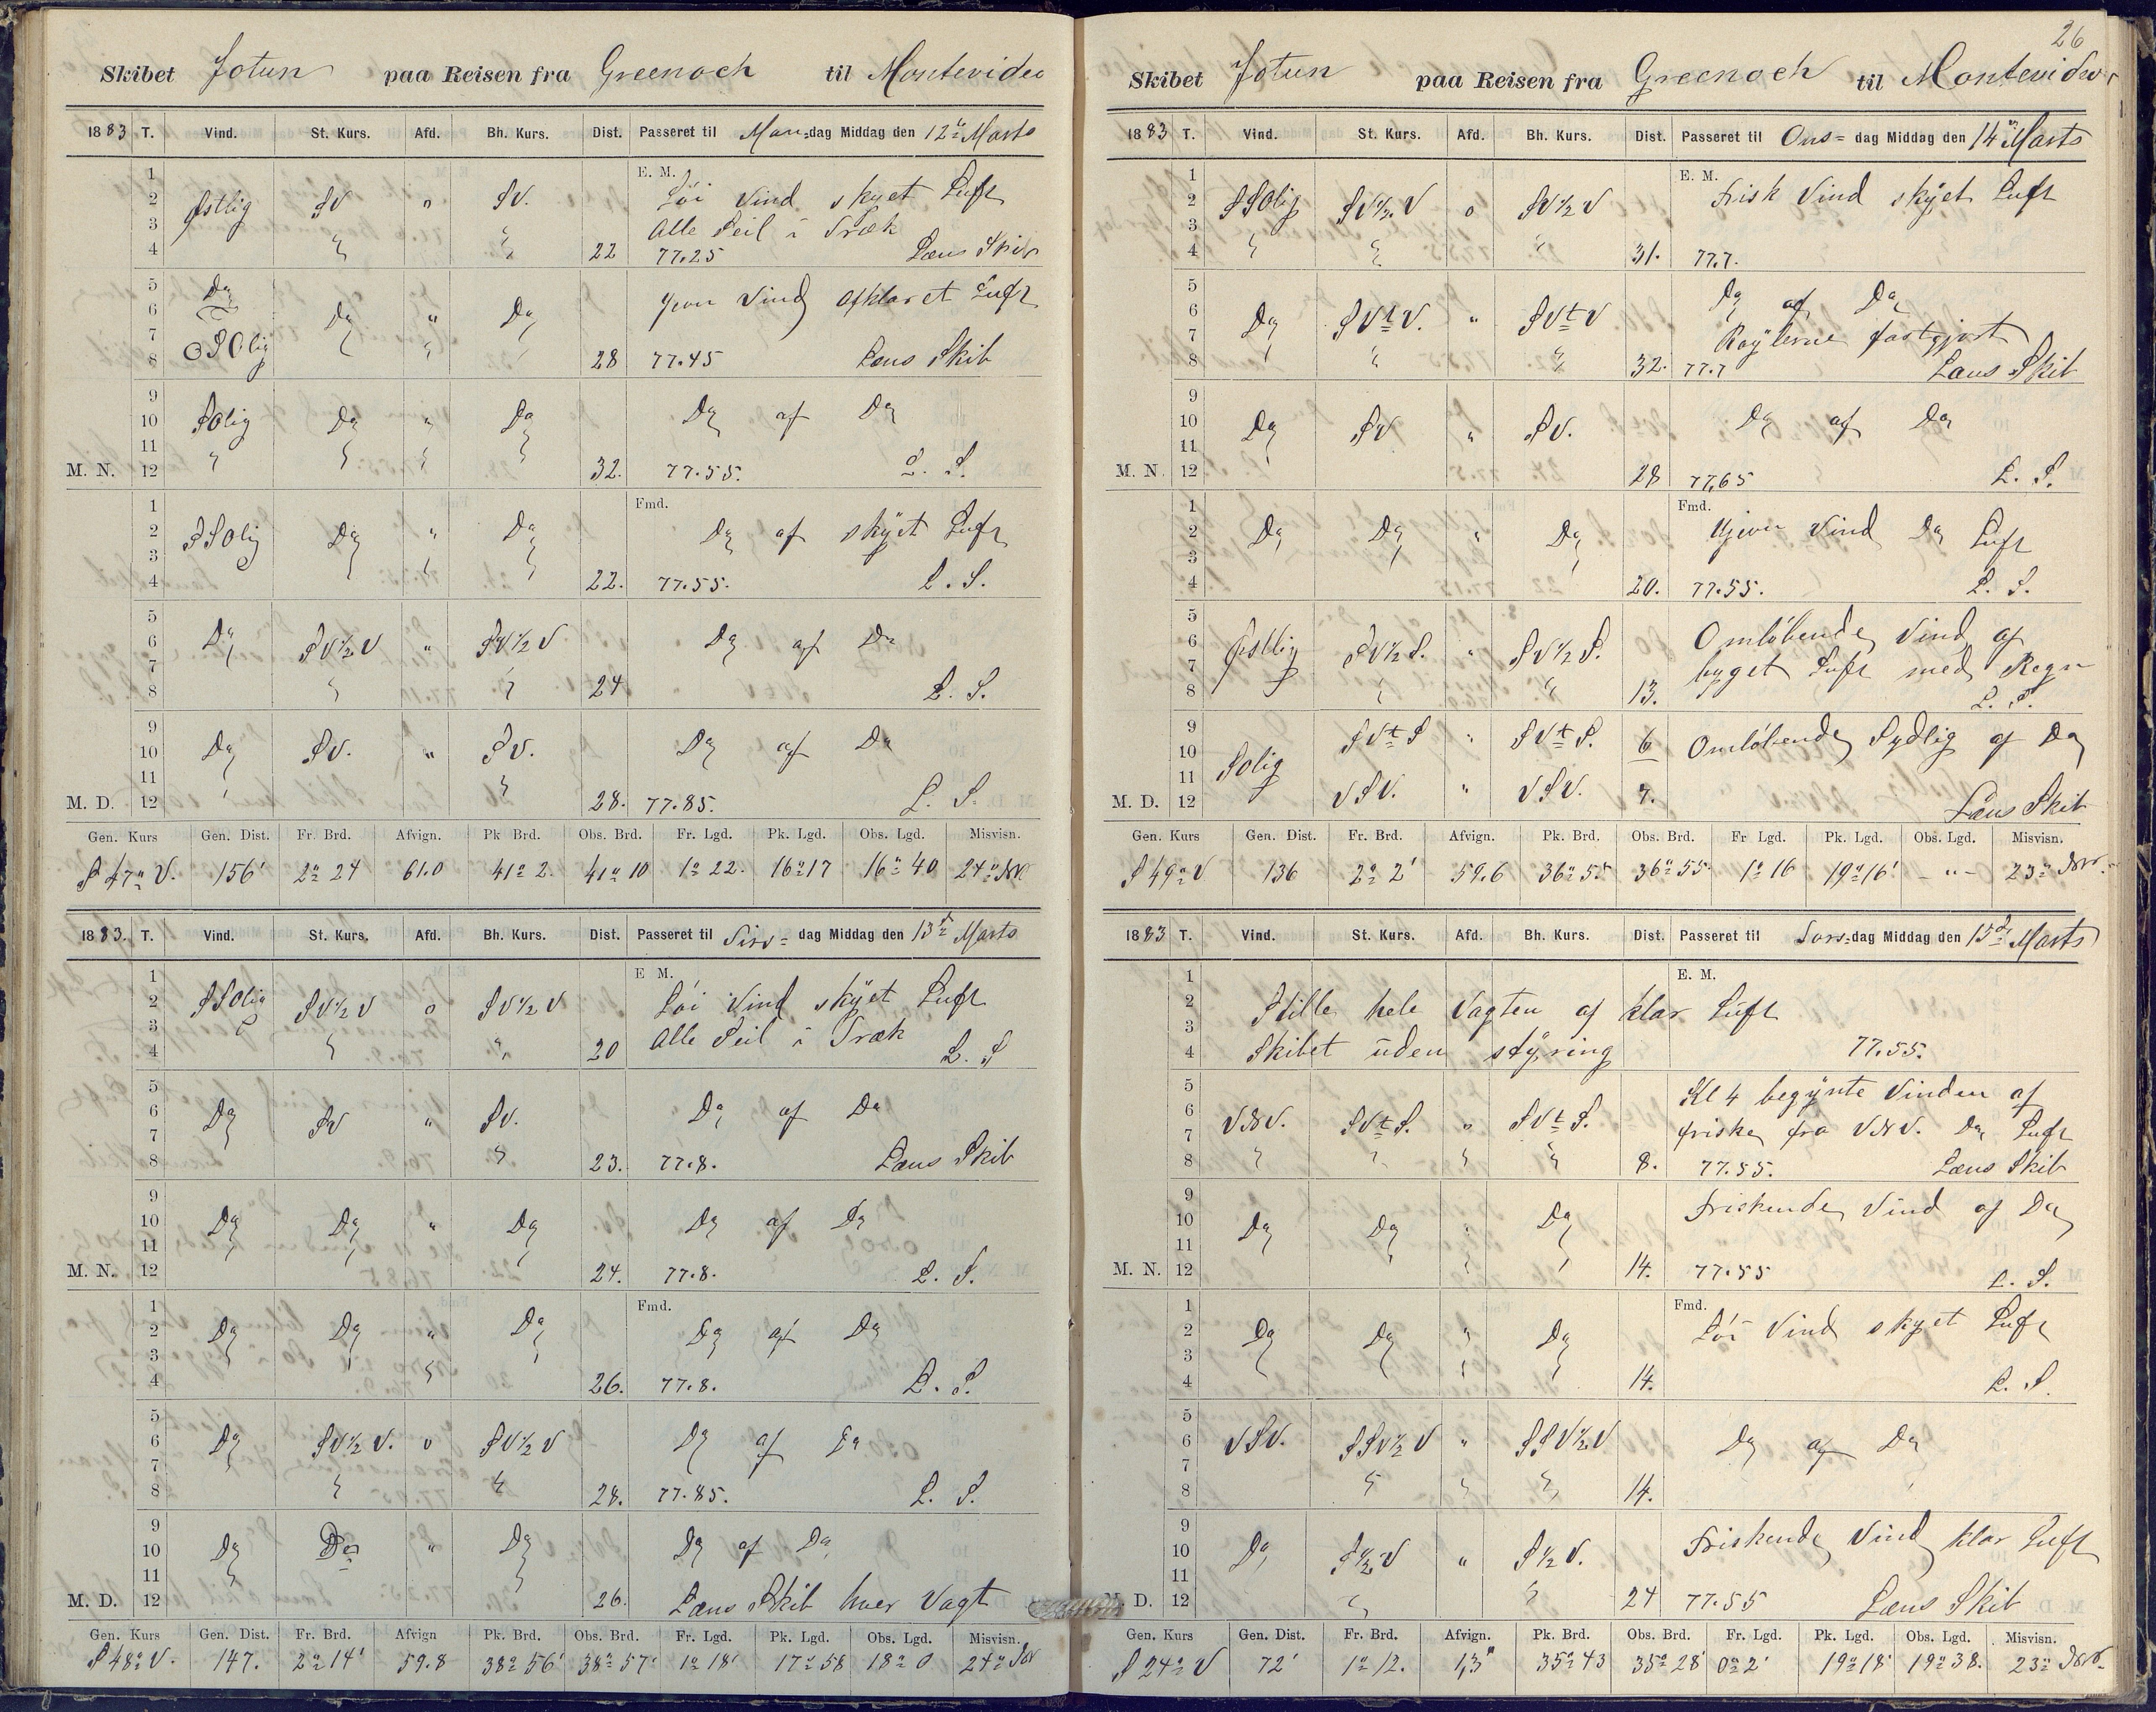 Skibet Jotun paa Reisen fra Greenoch til Montevideo
1883 T. Vind. St. Kurs. Afd. Bh. Kurs. Dist. Passeret til Man=dag Middag den 12te Marts
E. M.
1
2 Östlig SV o SV. Löi Vind skyet Luft
3 Alle Seil i Træk
4 22 77.25 Læns Skib
5 Do Jevn Vind afklaret Luft
6 Do " Do
7 OSOlig
8 28 77.45 Læns Skib
9
10 SOlig Do " Do Do af Do
11
M. N. 12 32. 77.55. L. S.
Fmd.
1
2 SSOlig Do " Do Do af skyet Luft
3
4 22. 77.55. L. S.
5
6 Do SV½V " SV½V Do af Do
7
8 24 L. S.
9
10 Do SV. " SV. Do af Do
11
M. D. 12 28. 77.85. L. S.
Gen. Kurs Gen. Dist. Fr. Brd. Afvign. Pk Brd. Obs. Brd. Fr. Lgd. Pk. Lgd. Obs. Lgd. Misvisn.
S 47° V. 156' 2° 24 61.0 41° 2. 41° 10 1° 22. 16° 17 16° 40 24° NV
1883. T. Vind. St. Kurs. Afd. Bh. Kurs. Dist. Passeret til Tirs= dag Middag den 13de Marts
E M.
1
2 SSOlig SV½V o SV½V Löi Vind skyet Luft
3 Alle Seil i Træk
4 20 L. S
5
6 Do SV " SV. Do af Do
7
8 23. 77.8. Læns Skib
9
10 Do Do " Do Do af Do
11
M. N. 12 24. 77.8. L. S.
Fmd.
1
2 Do Do " Do Do af Do
3
4 26. 77.8. L. S.
5
6 Do SV½V. o SV½V Do af Do
7
8 28. 77.85. L. S.
9
10 Do Do " Do Do af Do
11
M. D. 12 26. Læns Skib hver Vagt
Gen. Kurs Gen. Dist. Fr. Brd. Afvign Pk. Brd. Obs. Brd. Fr. Lgd. Pk. Lgd. Obs. Lgd. Misvisn.
S 48° V. 147. 2° 14' 59.8 38° 56' 38° 57' 1° 18' 17° 58 18° 0 24° NV
26
Skibet Jotun paa Reisen fra Greenoch til Montevideo
1883 T. Vind. St. Kurs. Afd. Bh. Kurs. Dist. Passeret til Ons= dag Middag den 14 Marts
E. M.
1
2 SSOlig SV½V o SV½V Frisk Vind skyet Luft
3
4 31. 77.7.
5
6 Do SVtV. " SVtV Do af Do
7 Röylerne fastgjort
8 32. 77.7 Læns Skib
9
10 Do SV " SV. Do af Do
11
M. N 12 28 77,65 L. S.
Fmd.
1
2 Do Do " Do Ujevn Vind Do Luft
3
4 20. 77.55. L. S.
5
6 Östlig SV½S. " SV½S. Omlöbende Vind af
7 byget Luft med Regn
8 13. L. S.
9
10 SOlig SVtS " SVtS. 6 Omlöbende Sydlig af Do
11 VSV. " VSV. 7.
M. D. 12 Læns Skib
Gen. Kurs Gen. Dist. Fr. Brd. Afvign. Pk. Brd. Obs. Brd. Fr Lgd. Pk. Lgd. Obs. Lgd. Misvisn.
S 49° V 136 2° 2' 59.6 36° 55 36° 55. 1° 16 19° 16' -"- 23° NV.
1883 T. Vind. St. Kurs. Afd. Bh. Kurs. Dist. Passeret til Tors=dag Middag den 15de Marts
E. M.
1
2 Stille hele Vagten af klar Luft
3
4 Skibet uden styring 77.55.
5 Kl 4 begynte Vinden af
6 VNV. SVtS. o SVtS. friske fra VNV. Do Luft
7
8 8. 77.55. Læns Skib
9 Friskende Vind af Do
10 Do Do " Do
11
M. N. 12 14. 77.55 L. S.
Fmd.
1
2 Do Do " Do Löi Vind skyet Luft
3
4 14. L. S.
5
6 VSV. SSV½V " SSV½V Do af Do
7
8 14.
9
10 Do S½V " S½V. Friskende Vind klar Luft
11
D. 12 24 77.55 Læns Skib
Gen. Kurs Gen. Dist. Fr. Brd. Afvign. Pk. Brd. Obs. Brd. Fr. Lgd. Pk. Lgd. Obs. Lgd. Misvisn.
S 24° V 72' 1° 12. 1,3" 35° 43 35° 28' 0° 2' 19° 18' 19° 38. 23° NV.